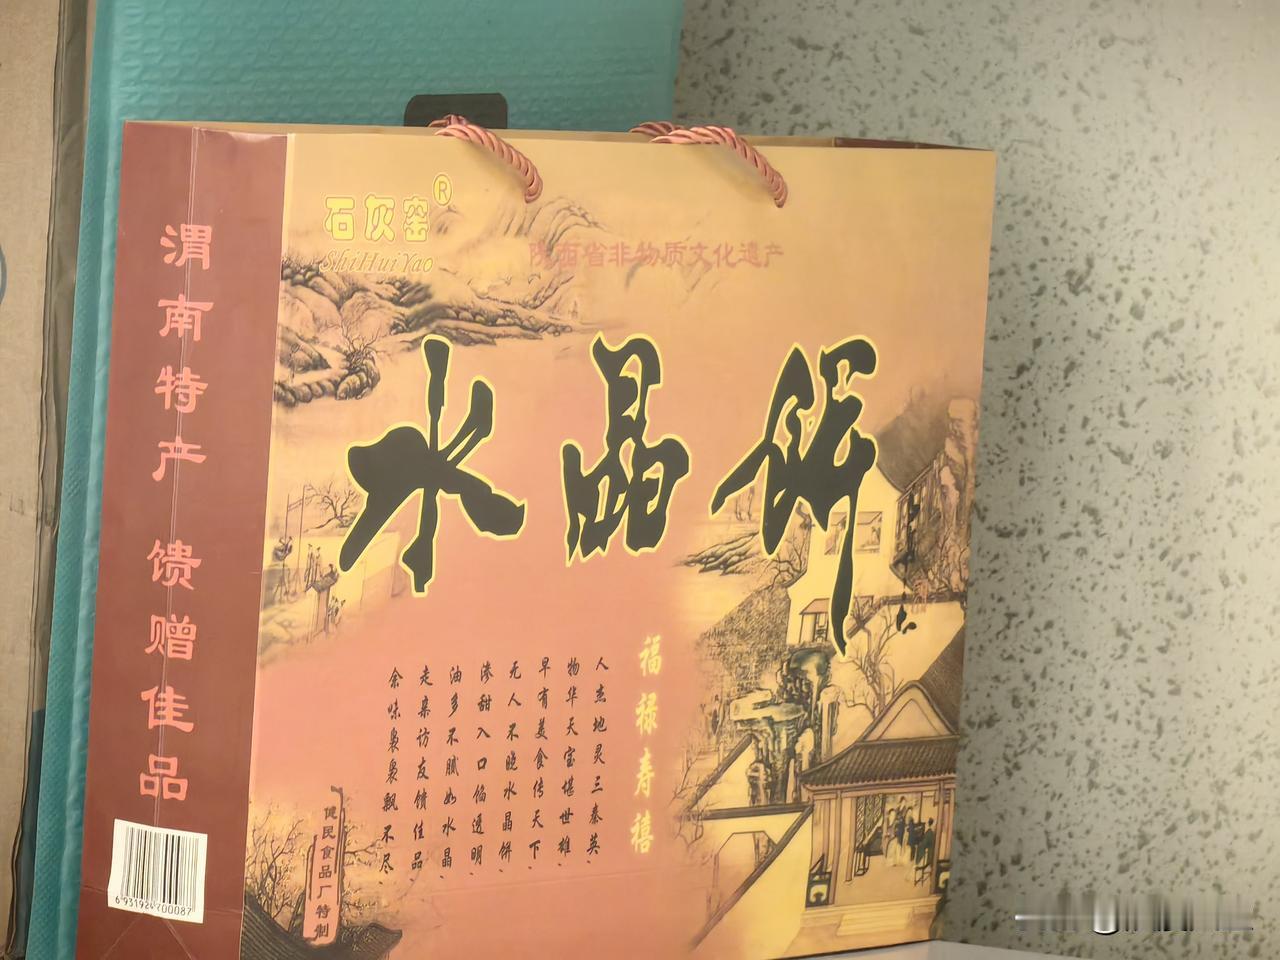 渭南特产 馈赠佳品
6 931924 700087
石灰窑®
ShiHuiYao
陕西省非物质文化遗产
水晶饼
福禄寿禧
人杰地灵三秦英、
物华天宝堪世雄、
早有美食传天下、
无人不晓水晶饼、
渗甜入口馅透明、
油多不腻如水晶、
走亲访友馈佳品、
余味袅袅飘不尽、
健民食品厂特制